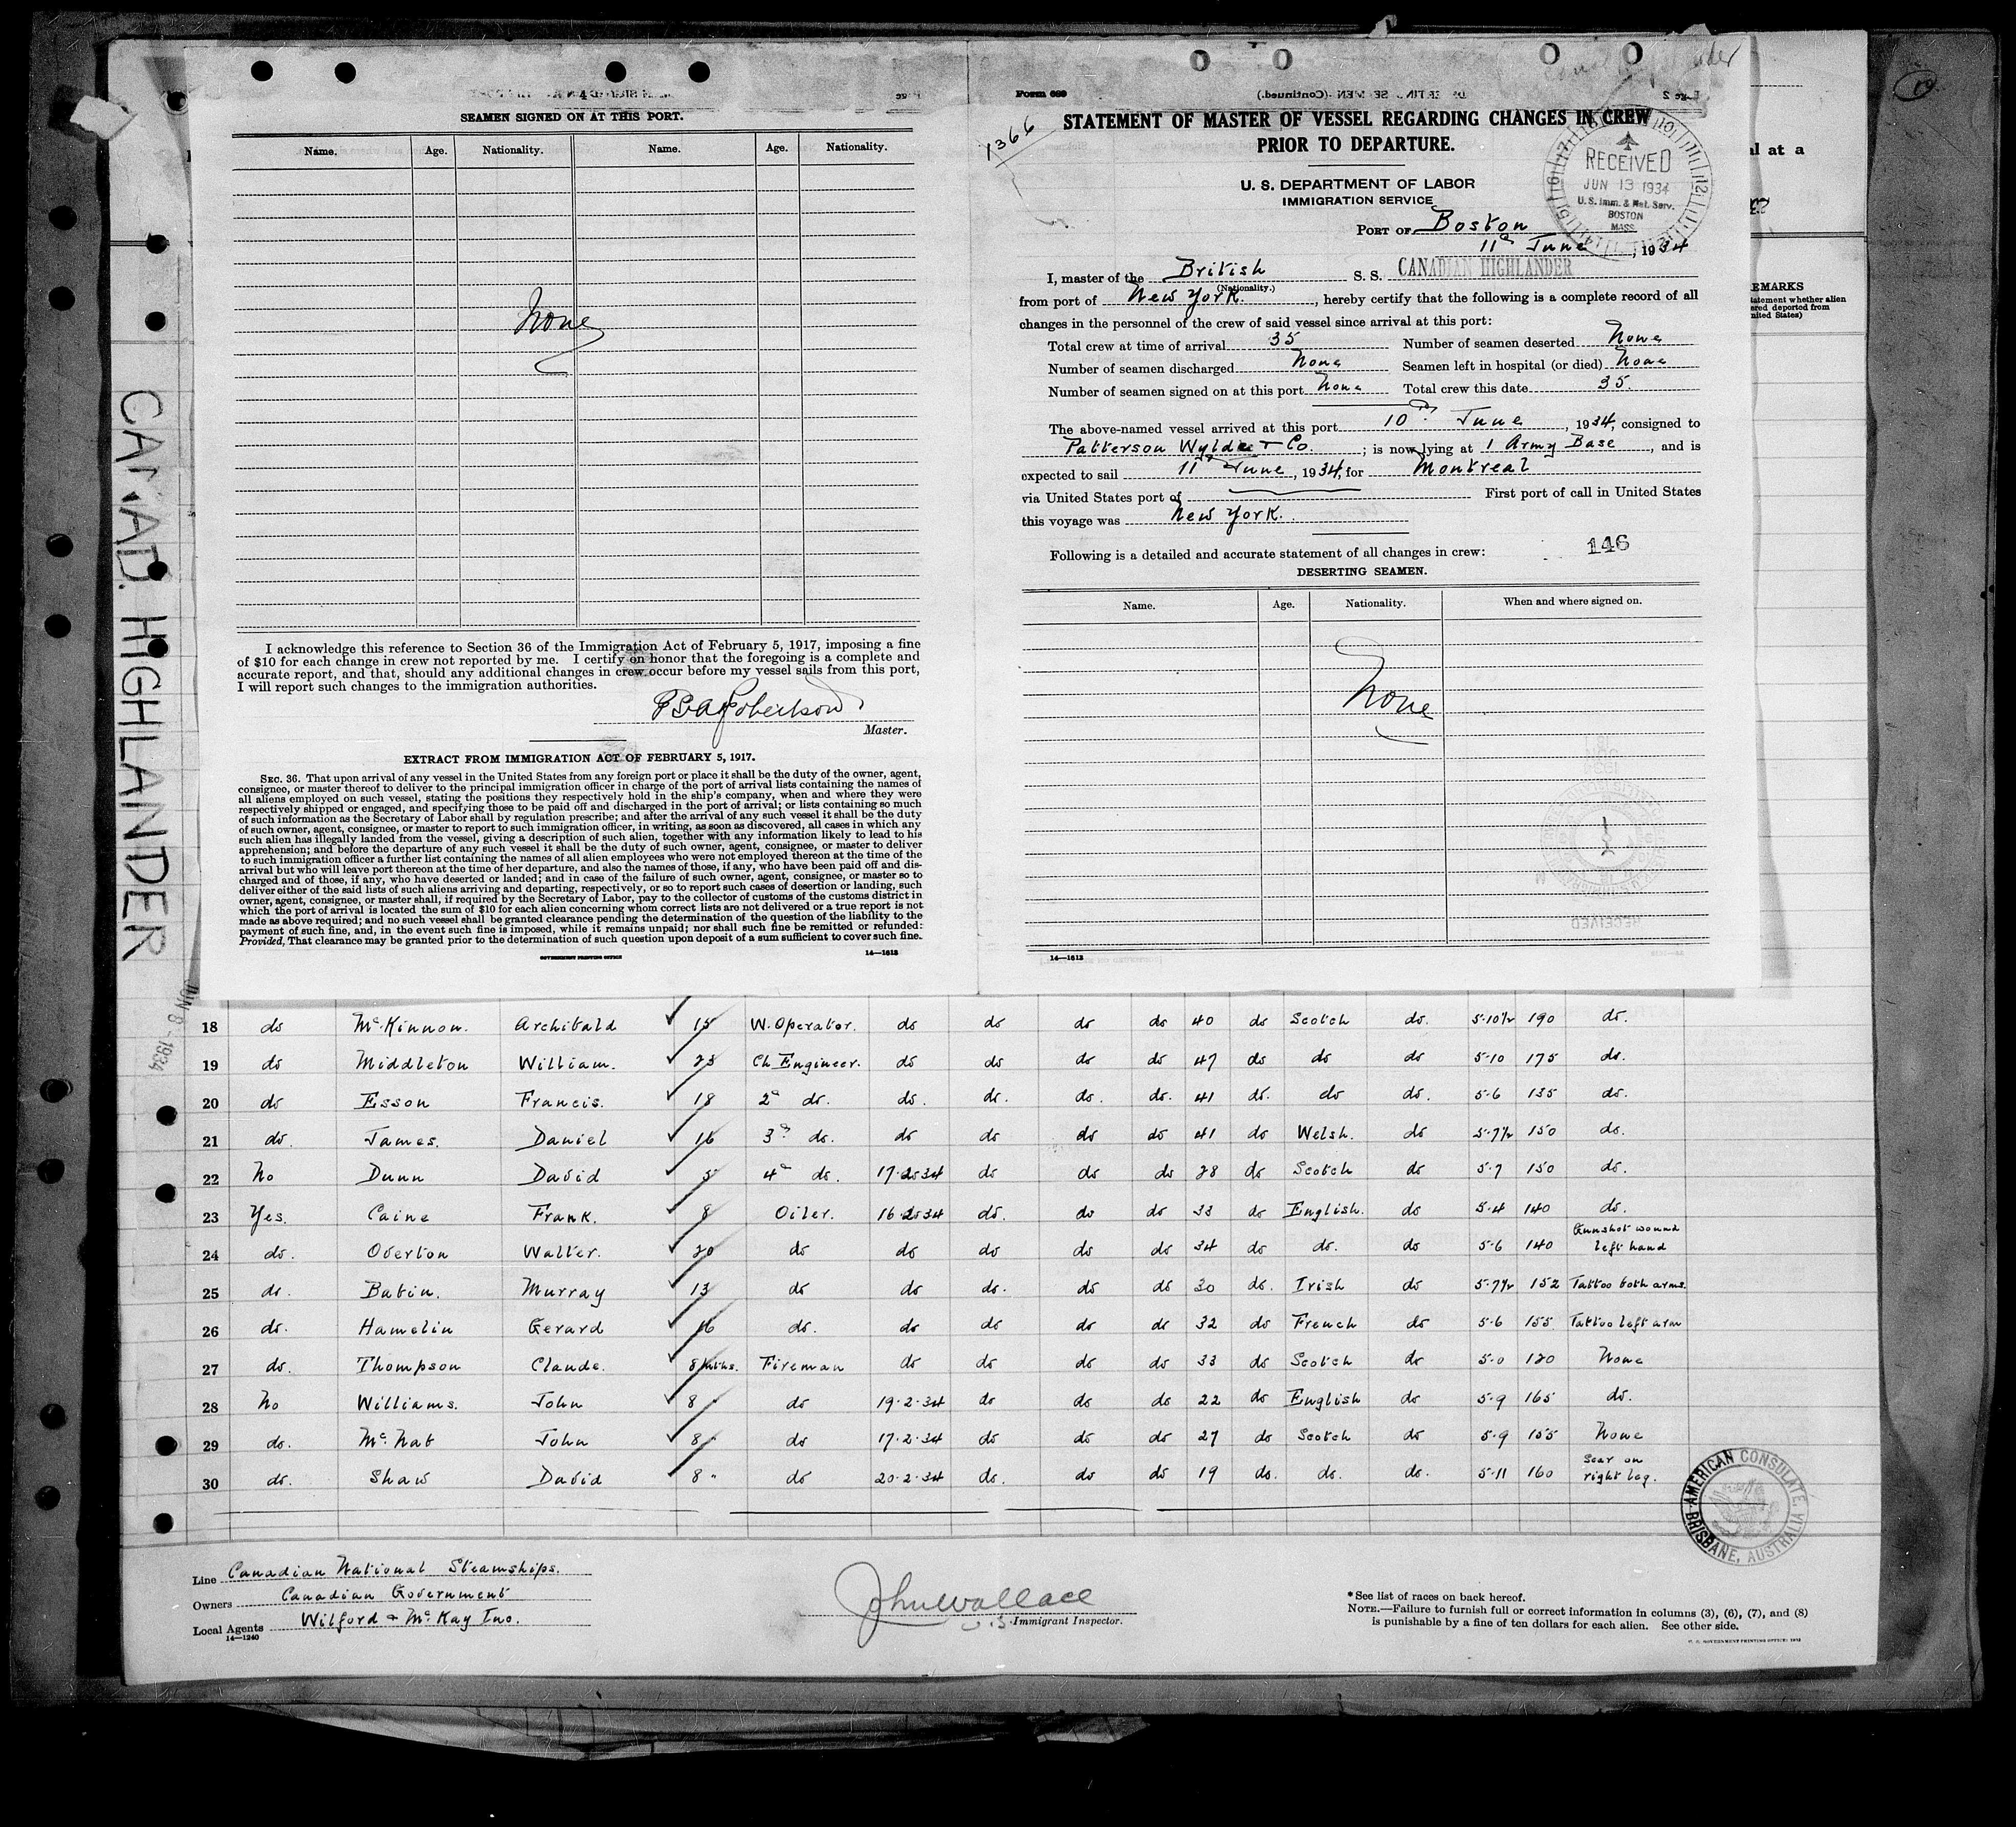 CANAD. HIGHLANDER
JUN 8 - 1934
4
SEAMEN SIGNED ON AT THIS PORT.
Name. Age. Nationality. Name. Age. Nationality.
None
I acknowledge this reference to Section 36 of the Immigration Act of February 5, 1917, imposing a fine
of $10 for each change in crew not reported by me. I certify on honor that the foregoing is a complete and
accurate report, and that, should any additional changes in crew occur before my vessel sails from this port,
I will report such changes to the immigration authorities.
Robertson
Master.
EXTRACT FROM IMMIGRATION ACT OF FEBRUARY 5, 1917.
SEC. 36. That upon arrival of any vessel in the United States from any foreign port or place it shall be the duty of the owner, agent,
consignee, or master thereof to deliver to the principal immigration officer in charge of the port of arrival lists containing the names of
all aliens employed on such vessel, stating the positions they respectively hold in the ship's company, when and where they were
respectively shipped or engaged, and specifying those to be paid off and discharged in the port of arrival; or lists containing so much
of such information as the Secretary of Labor shall by regulation prescribe; and after the arrival of any such vessel it shall be the duty
of such owner, agent, consignee, or master to report to such immigration officer, in writing, as soon as discovered, all cases in which any
such alien has illegally landed from the vessel, giving a description of such alien, together with any information likely to lead to his
apprehension; and before the departure of any such vessel it shall be the duty of such owner, agent, consignee, or master to deliver
to such immigration officer a further list containing the names of all alien employees who were not employed thereon at the time of the
arrival but who will leave port thereon at the time of her departure, and also the names of those, if any, who have been paid off and dis-
charged and of those, if any, who have deserted or landed; and in case of the failure of such owner, agent, consignee, or master so to
deliver either of the said lists of such aliens arriving and departing, respectively, or so to report such cases of desertion or landing, such
owner, agent, consignee, or master shall, if required by the Secretary of Labor, pay to the collector of customs of the customs district in
which the port of arrival is located the sum of $10 for each alien concerning whom correct lists are not delivered or a true report is not
made as above required; and no such vessel shall be granted clearance pending the determination of the question of the liability to the
payment of such fine, and, in the event such fine is imposed, while it remains unpaid; nor shall such fine be remitted or refunded:
Provided, That clearance may be granted prior to the determination of such question upon deposit of a sum sufficient to cover such fine.
GOVERNMENT PRINTING OFFICE 14—1613
Form 689
1366
STATEMENT OF MASTER OF VESSEL REGARDING CHANGES IN CREW
PRIOR TO DEPARTURE.
U. S. DEPARTMENT OF LABOR
IMMIGRATION SERVICE
RECEIVED
JUN 13 1934
U. S. Imm. & Nat. Serv.
BOSTON
MASS.
PORT OF Boston
11th June, 1934
I, master of the British S. S. CANADIAN HIGHLANDER
(Nationality.)
from port of New York., hereby certify that the following is a complete record of all
changes in the personnel of the crew of said vessel since arrival at this port:
Total crew at time of arrival 35 Number of seamen deserted None
Number of seamen discharged None Seamen left in hospital (or died) None
Number of seamen signed on at this port None Total crew this date 35.
The above-named vessel arrived at this port 10th June, 1934, consigned to
Patterson Wylde & Co.; is now lying at 1 Army Base, and is
expected to sail 11th June, 1934, for Montreal
via United States port of First port of call in United States
this voyage was New York.
Following is a detailed and accurate statement of all changes in crew: 146
DESERTING SEAMEN.
Name. Age. Nationality. When and where signed on.
None
14—1613
al at a
REMARKS
18 do McKinnon. Archibald 15 W. Operator. do do do do 40 do Scotch do. 5-10½ 190 do.
19 do Middleton William. 25 Ch Engineer. do do do do 47 do do do 5-10 175 do.
20 do Esson Francis. 18 2d do. do. do. do. do. 41 do. do do. 5-6 135 do.
21 do. James. Daniel 16 3d do. do do do do 41 do Welsh. do 5-7½ 150 do.
22 No Dunn David 5 4th do. 17-2-34 do do do 28 do Scotch do 5-7 150 do.
23 Yes. Caine Frank. 8 Oiler. 16-2-34 do. do do 33 do English. do 5-4 140 do.
24 do. Overton Walter. 20 do do do do do 34 do do. do 5-6 140 Gunshot wound left hand
25 do. Babin. Murray 13 do do do. do do 30 do. Irish do 5-7½ 152 Tattoo both arms.
26 do. Hamelin Gerard 16 do. do do do do 32 do French do 5-6 155 Tattoo left arm
27 do. Thompson Claude. 8 mths. Fireman do do do do 33 do Scotch do 5-0 120 None
28 No Williams. John 8 " do 19-2-34 do do do 22 do English do 5-9 165 do.
29 do. McNab John 8 " do 17-2-34 do do do 27 do Scotch do 5-9 155 None
30 do. Shaw David 8 " do 20-2-34 do. do do 19 do. do. do. 5-11 160 Scar on right leg.
AMERICAN CONSULATE,
BRISBANE, AUSTRALIA
Line Canadian National Steamships.
Owners Canadian Government
Local Agents Wilford & McKay Inc.
14—1240
John Wallace
Immigrant Inspector.
* See list of races on back hereof.
NOTE.—Failure to furnish full or correct information in columns (3), (6), (7), and (8)
is punishable by a fine of ten dollars for each alien. See other side.